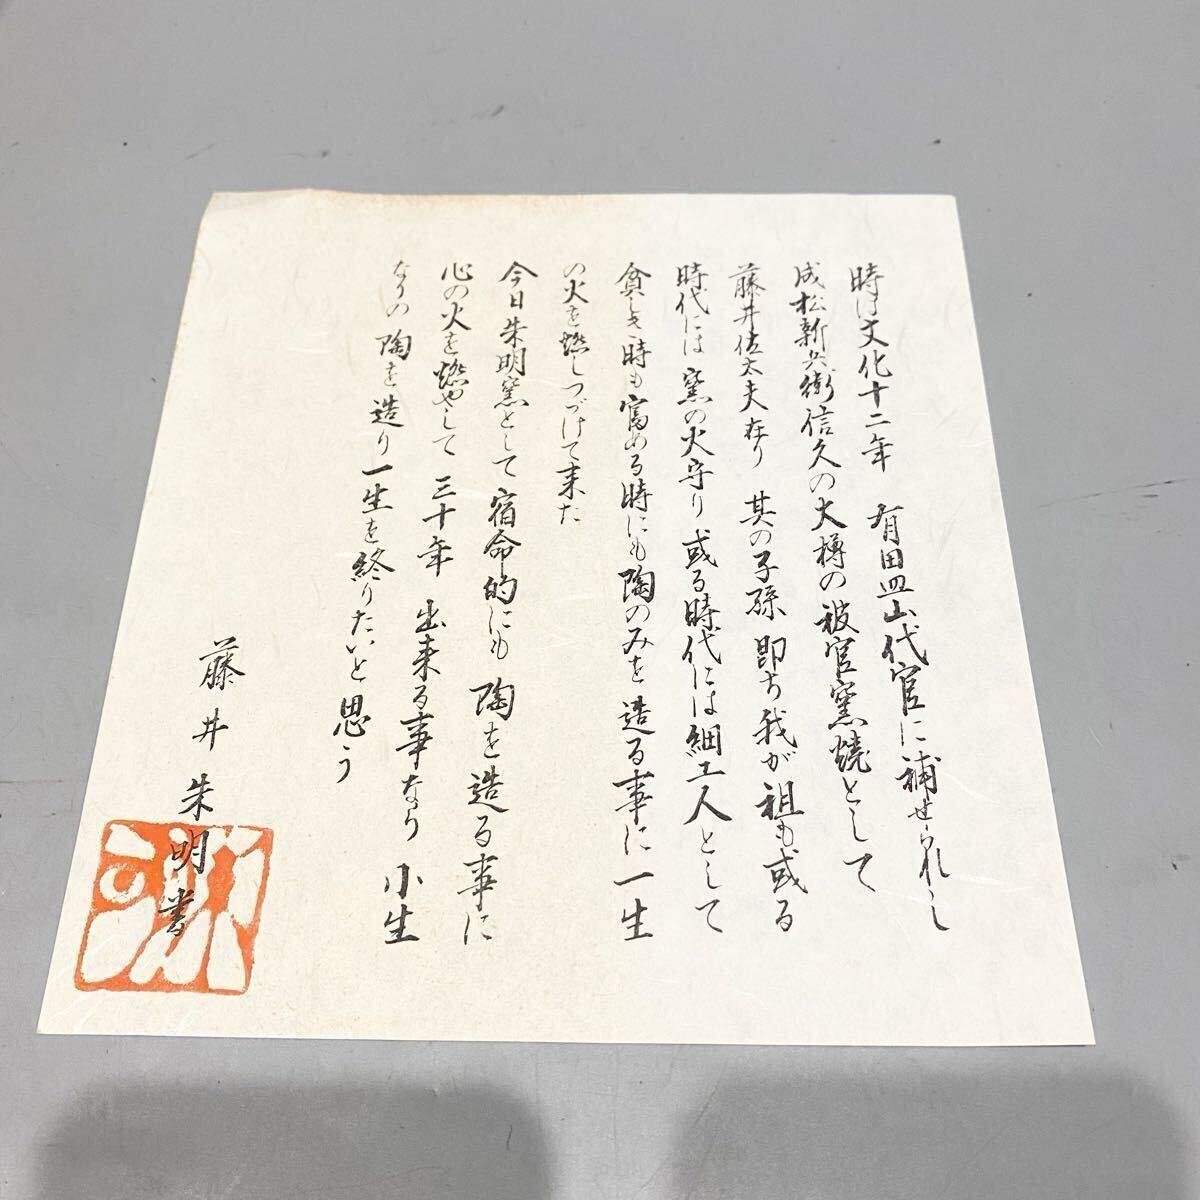 時は文化十二年 有田皿山代官に補せられし
成松新兵衛信久の大樽の被官窯焼として
藤井佐太夫在り 其の子孫 即ち我が祖も或る
時代には窯の火守り或る時代には細工人として
貧しき時も富める時にも陶のみを造る事に一生
の火を燃しつづけて来た
今日朱明窯として宿命的にも陶を造る事に
心の火を燃やして 三十年 出来る事なら 小生
なりの陶を造り一生を終りたいと思う
藤井朱明書